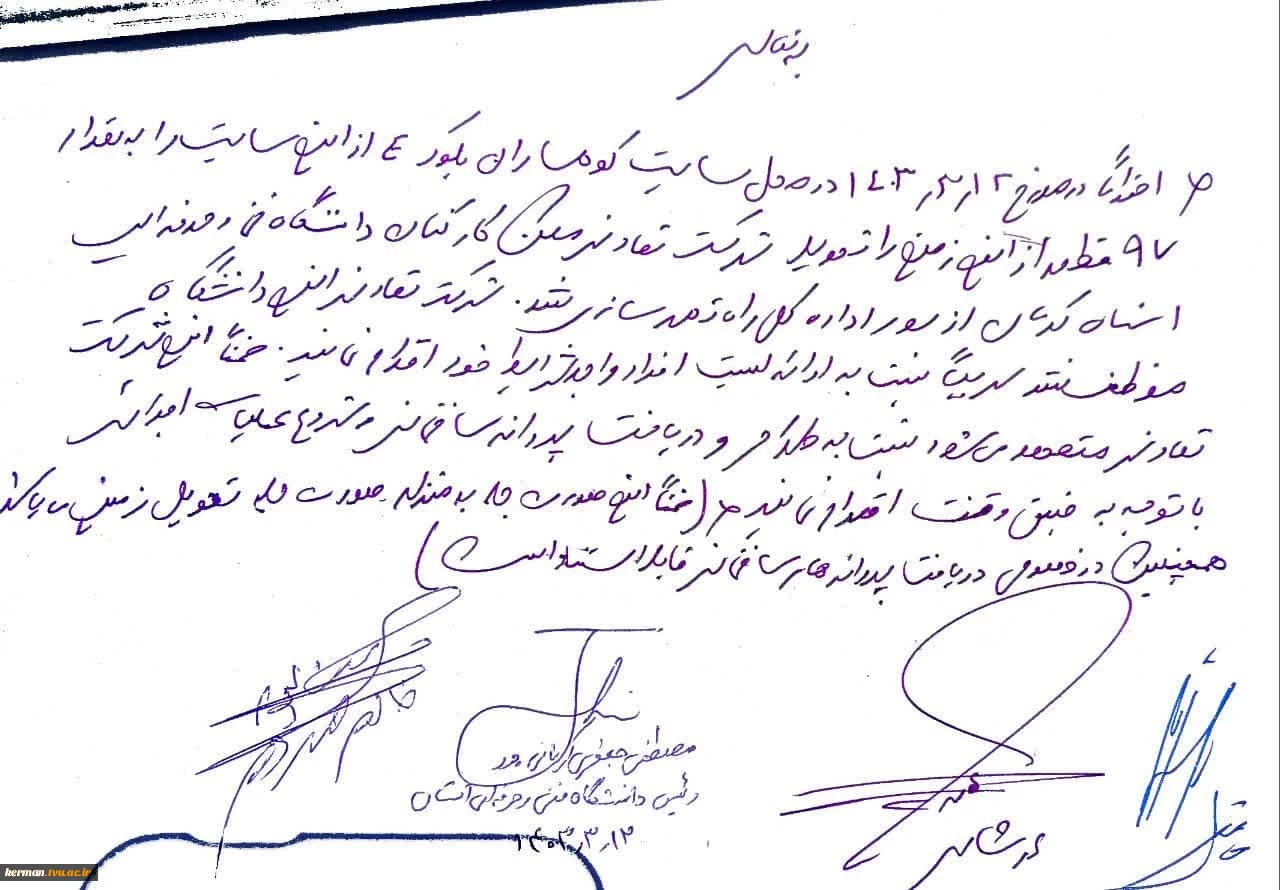 بسمه تعالی
احتراماً در مورخ ۱۴۰۳,۳,۱۲ در محل سایت کوهساران بلوک ٤ از این سایت را به مقدار
۹۷ قطعه از این زمین را تحویل شرکت تعاونی مسکن کارکنان دانشگاه فنی و حرفه ای
استان کرمان از سوی اداره کل راه و شهرسازی شد. شرکت تعاونی این دانشگاه
موظف هستند سریعاً نسبت به ارائه لیست افراد واجد شرایط خود اقدام نمایند. ضمناً این شرکت
تعاونی متعهد می شود نسبت به طراحی و دریافت پروانه ساختمانی و شروع عملیات اجرائی
با توجه به ضیق وقت اقدام نمایند (ضمناً این صورت جلسه به منزله صورت جلسه تحویل زمین می باشد
همچنین در خصوص دریافت پروانه های ساختمانی قابل استناد است)
مصطفی جعفری
رئیس دانشگاه فنی و حرفه ای استان
۱۴۰۳,۳,۱۲
kerman.tvu.ac.ir